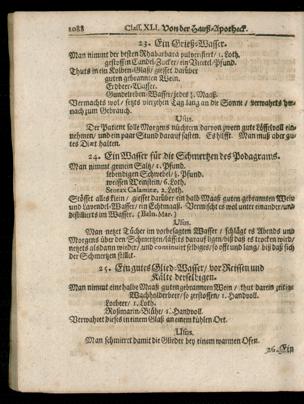 1088 Claſſ. XLI. Von der Hauß-Apotheck.
23. Ein Grieß-Waſſer.
Man nimmt der beſten Rhabarbara pulveriſiert / 1. Loth.
geſtoſſen Candel-Zucker / ein Viertel-Pfund.
Thuts in ein Kolben-Glaß / gieſſet darüber
guten gebrannten Wein.
Erdbeer-Waſſer.
Gundelreben-Waſſer / jedes ½. Maaß.
Vermachts wol / ſetzts vierzehen Tag lang an die Sonne / verwahrts hernach zum Gebrauch.
Uſus.
Der Patient ſolle Morgens nüchtern darvon zween gute Löffelvoll einnehmen / und ein paar Stund darauf faſten. Es hilfft. Man muß aber gutes Diæt halten.
24. Ein Waſſer für die Schmertzen des Podagrams.
Man nimmt gemein Saltz / 1. Pfund.
lebendigen Schwefel / ½. Pfund.
weiſſen Weinſtein / 6. Loth.
Storax Calamitæ, 2. Loth.
Stöſſet alles klein / gieſſet darüber ein halb Maaß guten gebrannten Wein
und Lavendel-Waſſer / ein Echtmaaß. Vermiſchet es wol unter einander / und
diſtilliert im Waſſer. (Baln. Mar.)
Uſus.
Man netzet Tücher im vorbeſagten Waſſer / ſchlägt es Abends und
Morgens über den Schmertzen / läſſets darauf ligen / biß daß es trocken wird /
netzets alsdann wieder / und continuirt ſelbiges / ſo offt und lang / biß daß ſich
der Schmertzen ſtillet.
25. Ein gutes Glied-Waſſer / vor Reiſſen und
Kälte derſelbigen.
Man nimmt eine halbe Maaß guten gebrannten Wein / thut darein zeitige
Wachholderbeer / ſo zerſtoſſen / 1. Handvoll.
Lorbeer / 1. Loth.
Roſimarin-Blühe / 1. Handvoll.
Verwahret dieſes in einem Glaß an einem kühlen Ort.
Uſus.
Man ſchmieret damit die Glieder bey einem warmen Ofen.
26. Ein